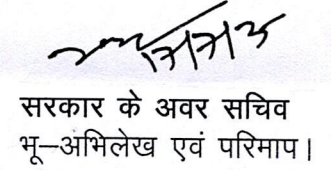 सरकार के अवर सचिव
भू–अभिलेख एवं परिमाप।